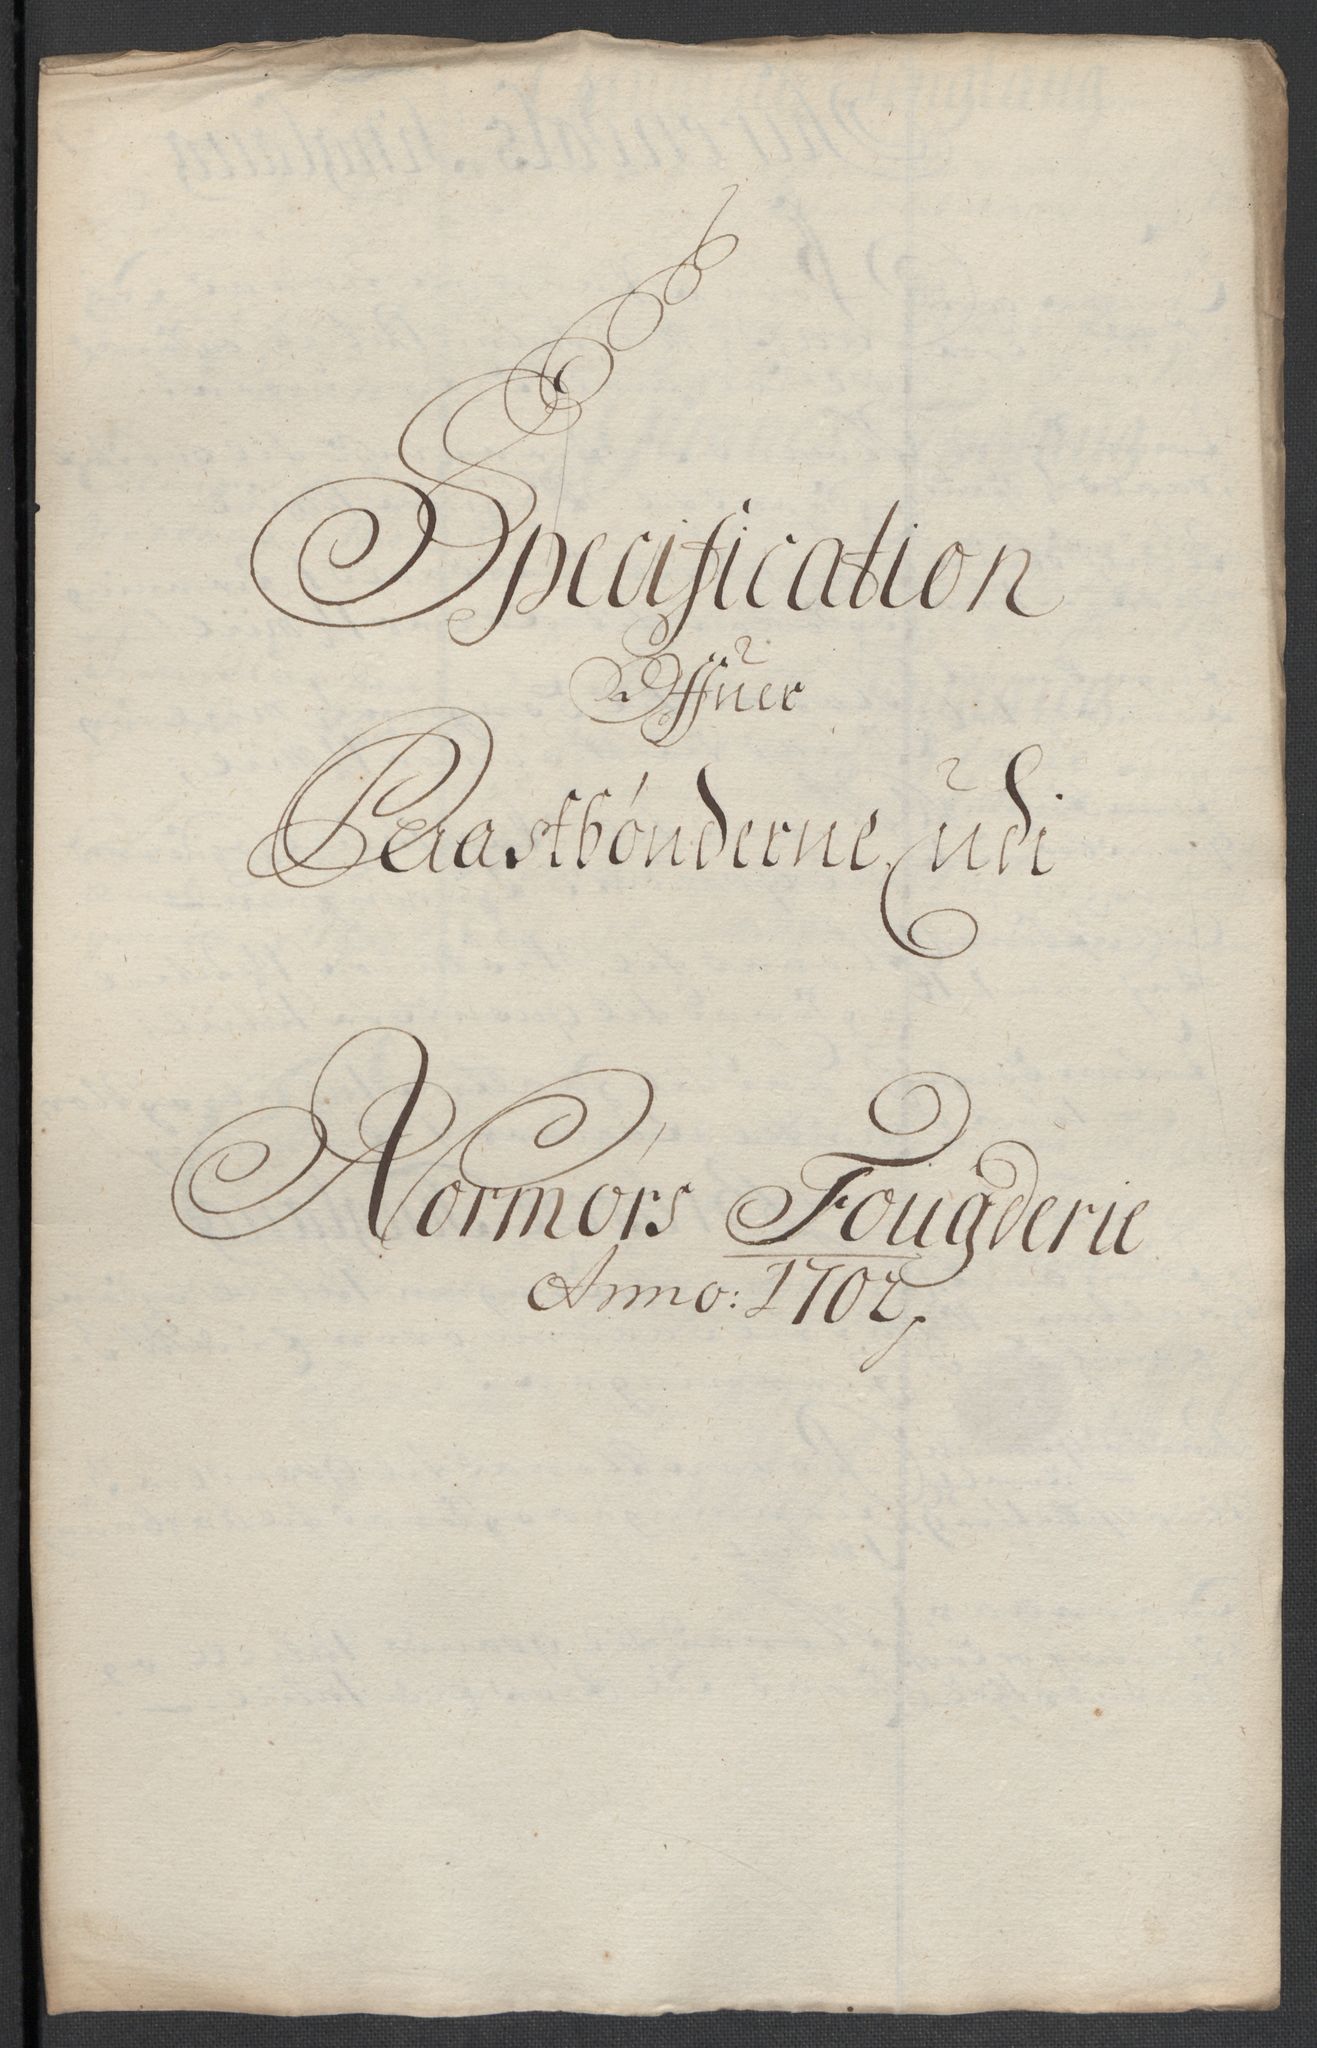 Specification
Offuer
Peraastbønderne udi
Normørs Fougderie
Anno: 1702,